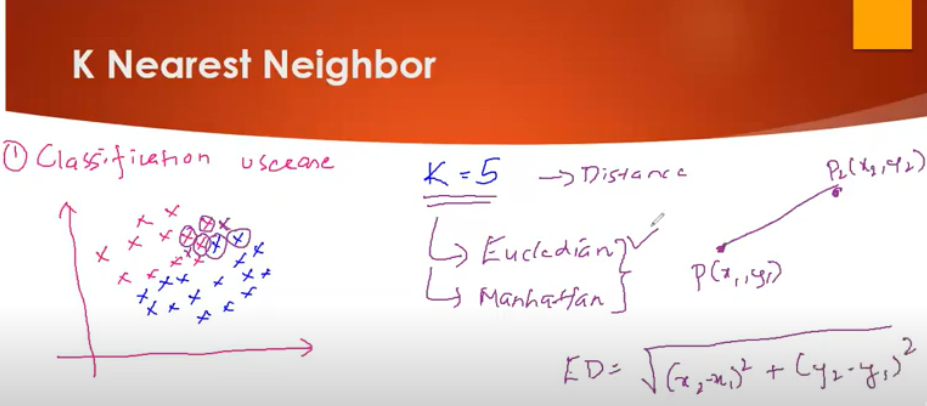 K Nearest Neighbor
① Classification usecase
K = 5 → Distance
→ Eucledian
→ Manhattan
P₂(x₂, y₂)
P(x₁, y₁)
ED = √(x₂-x₁)² + (y₂-y₁)²